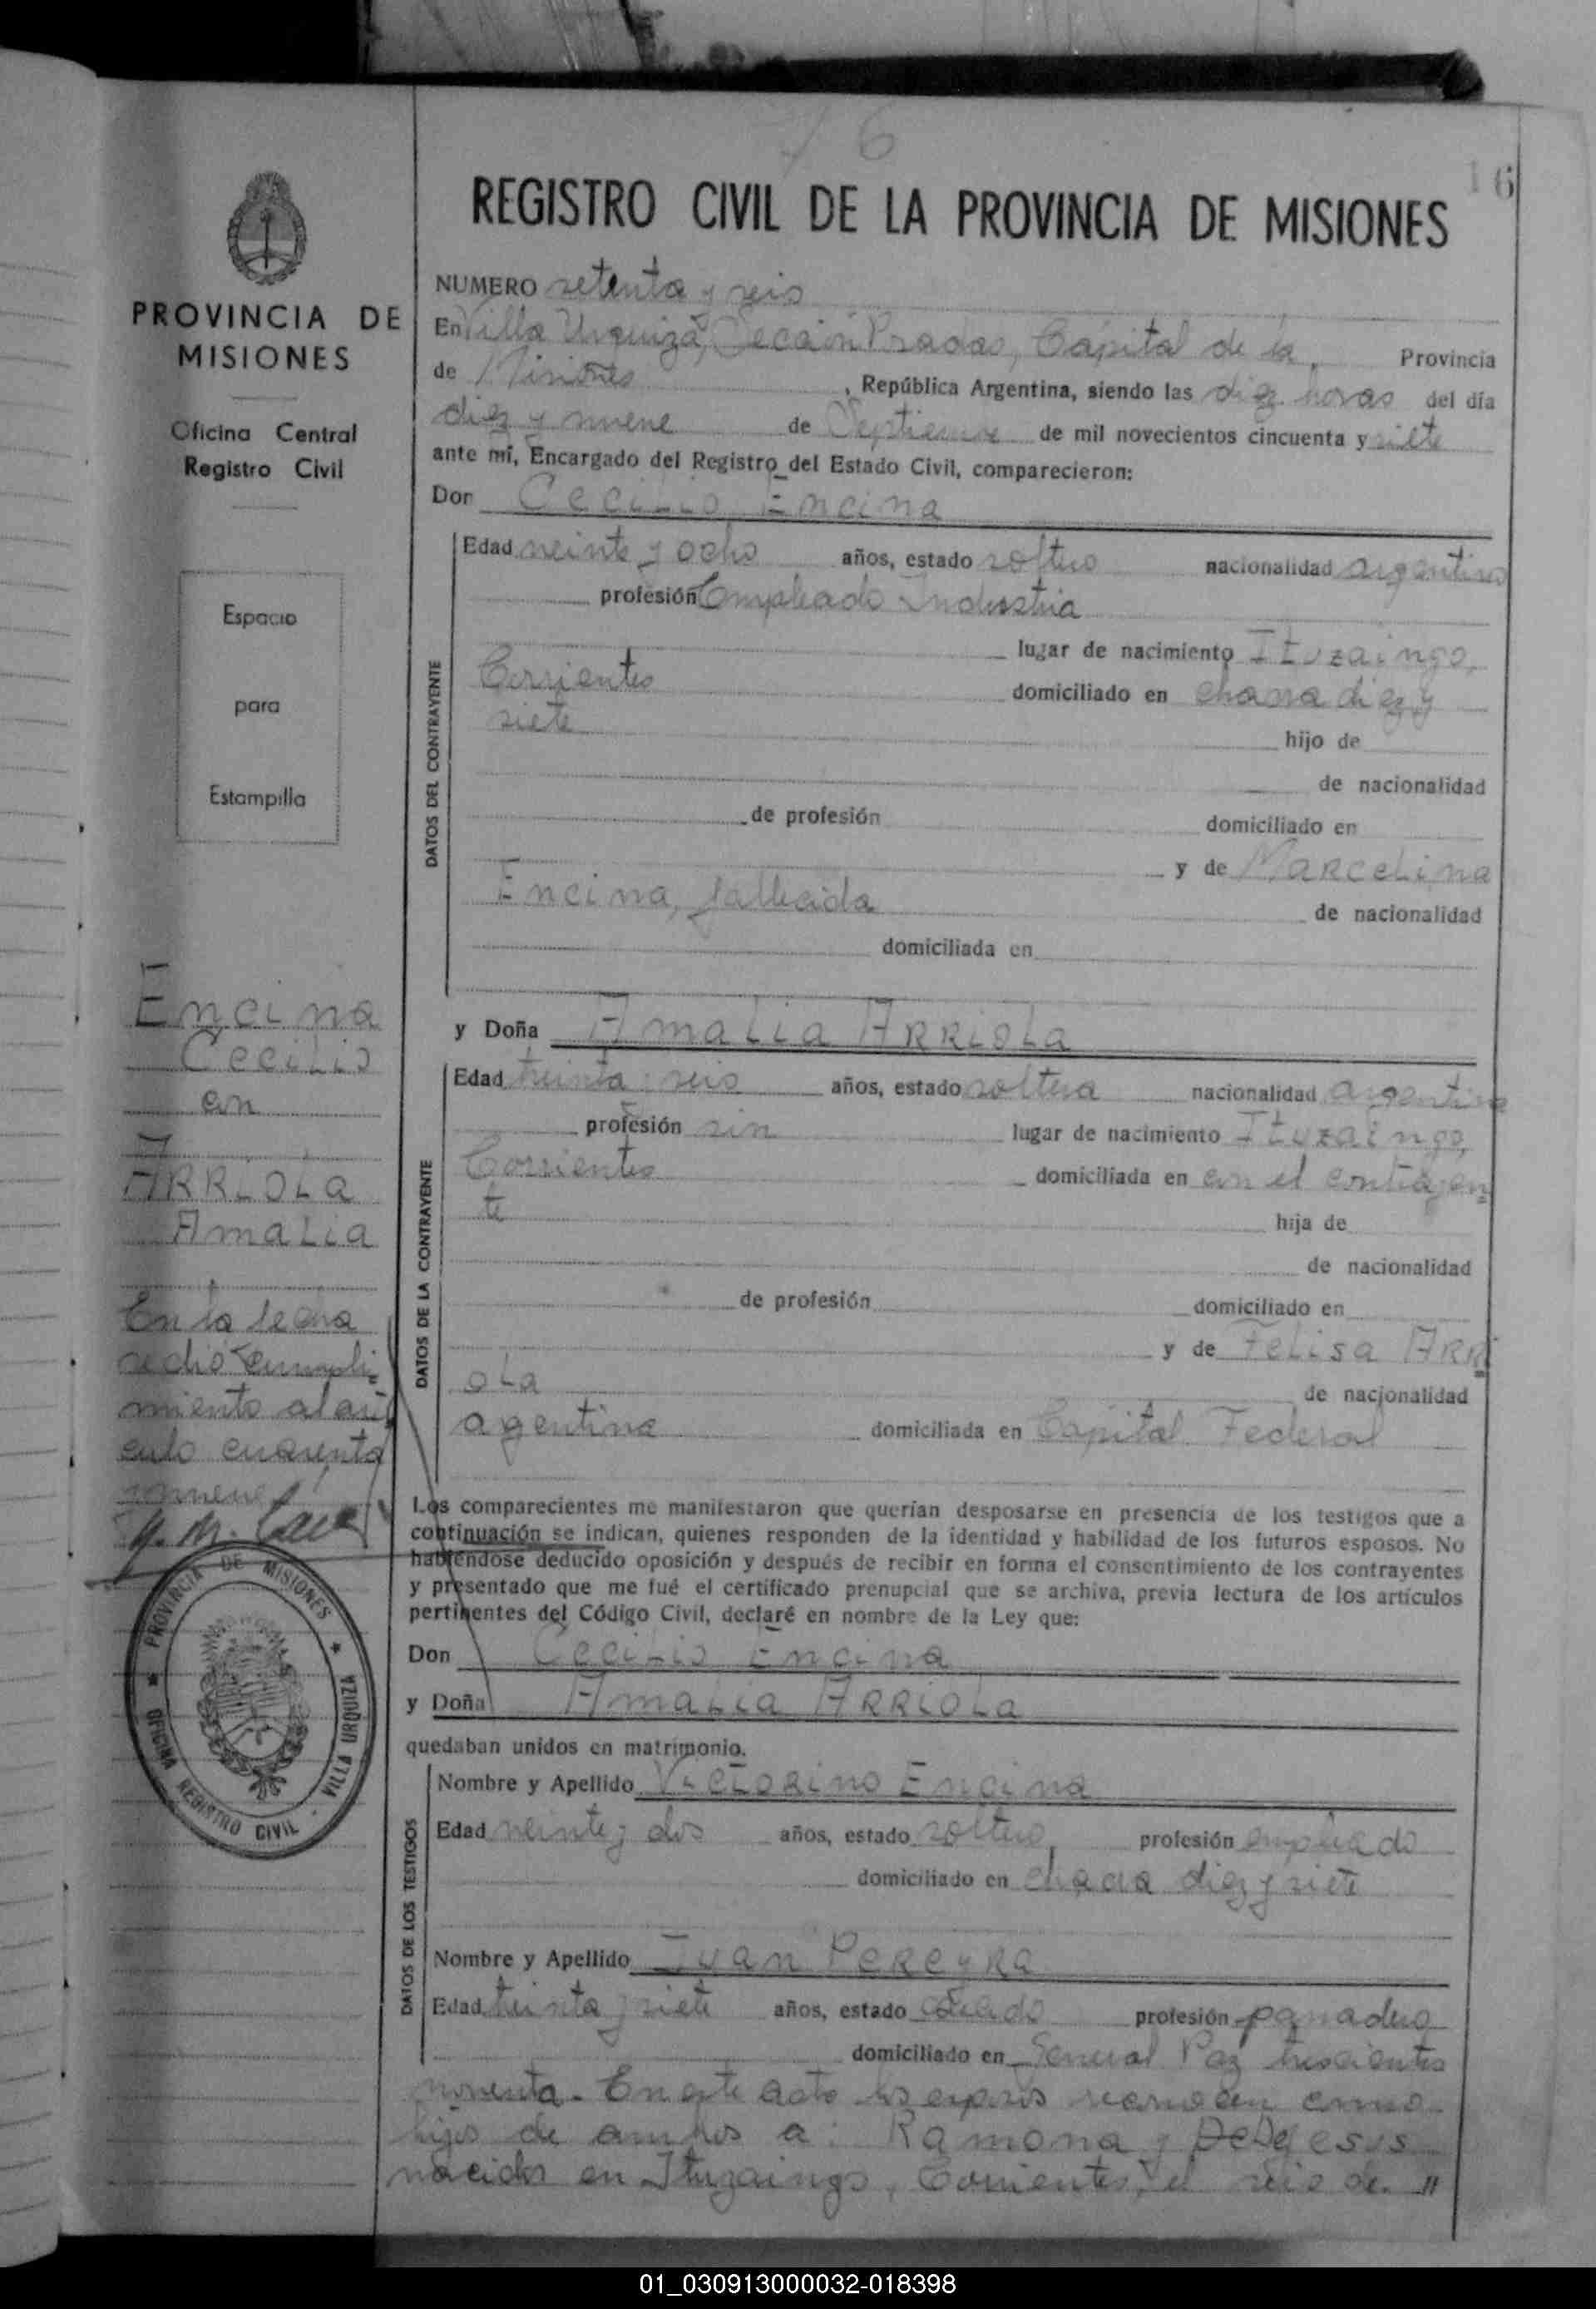 76
16
REGISTRO CIVIL DE LA PROVINCIA DE MISIONES
PROVINCIA DE
MISIONES
Oficina Central
Registro Civil
Espacio
para
Estampilla
Encina
Cecilio
con
ARRIOLA
Amalia
En la fecha
se dió cumpli-
miento al artí
culo cuarenta
y nueve
PROVINCIA DE MISIONES
OFICINA REGISTRO CIVIL
VILLA URQUIZA
NUMERO setenta y seis
En Villa Urquiza, Sección Pradas, Capital de la Provincia
de Misiones, República Argentina, siendo las diez horas del día
diez y nueve de Septiembre de mil novecientos cincuenta y siete
ante mí, Encargado del Registro del Estado Civil, comparecieron:
Don Cecilio Encina
DATOS DEL CONTRAYENTE
Edad veinte y ocho años, estado soltero nacionalidad argentino
profesión Empleado Industria
lugar de nacimiento Ituzaingo,
Corrientes domiciliado en chacra diez y
siete hijo de
de nacionalidad
de profesión domiciliado en
y de Marcelina
Encina, fallecida de nacionalidad
domiciliada en
y Doña Amalia ARRIOLA
DATOS DE LA CONTRAYENTE
Edad treinta y seis años, estado soltera nacionalidad argentina
profesión sin lugar de nacimiento Ituzaingo,
Corrientes domiciliada en con el contrayen
te hija de
de nacionalidad
de profesión domiciliado en
y de Felisa ARRi
oLa de nacionalidad
agentina domiciliada en Capital Federal
Los comparecientes me manifestaron que querían desposarse en presencia de los testigos que a
continuación se indican, quienes responden de la identidad y habilidad de los futuros esposos. No
habiéndose deducido oposición y después de recibir en forma el consentimiento de los contrayentes
y presentado que me fué el certificado prenupcial que se archiva, previa lectura de los artículos
pertinentes del Código Civil, declaré en nombre de la Ley que:
Don Cecilio Encina
y Doña Amalia ARRIOLA
quedaban unidos en matrimonio.
DATOS DE LOS TESTIGOS
Nombre y Apellido Victorino Encina
Edad veinte y dos años, estado soltero profesión empleado
domiciliado en chacra diez y siete
Nombre y Apellido Juan Pereyra
Edad treinta y siete años, estado casado profesión panadero
domiciliado en General Paz trescientos
noventa.- En este acto los esposos reconocen como
hijos de ambos a: Ramona y DeDejesus
nacidos en Ituzaingo, Corrientes, el seis de "
01_030913000032-018398